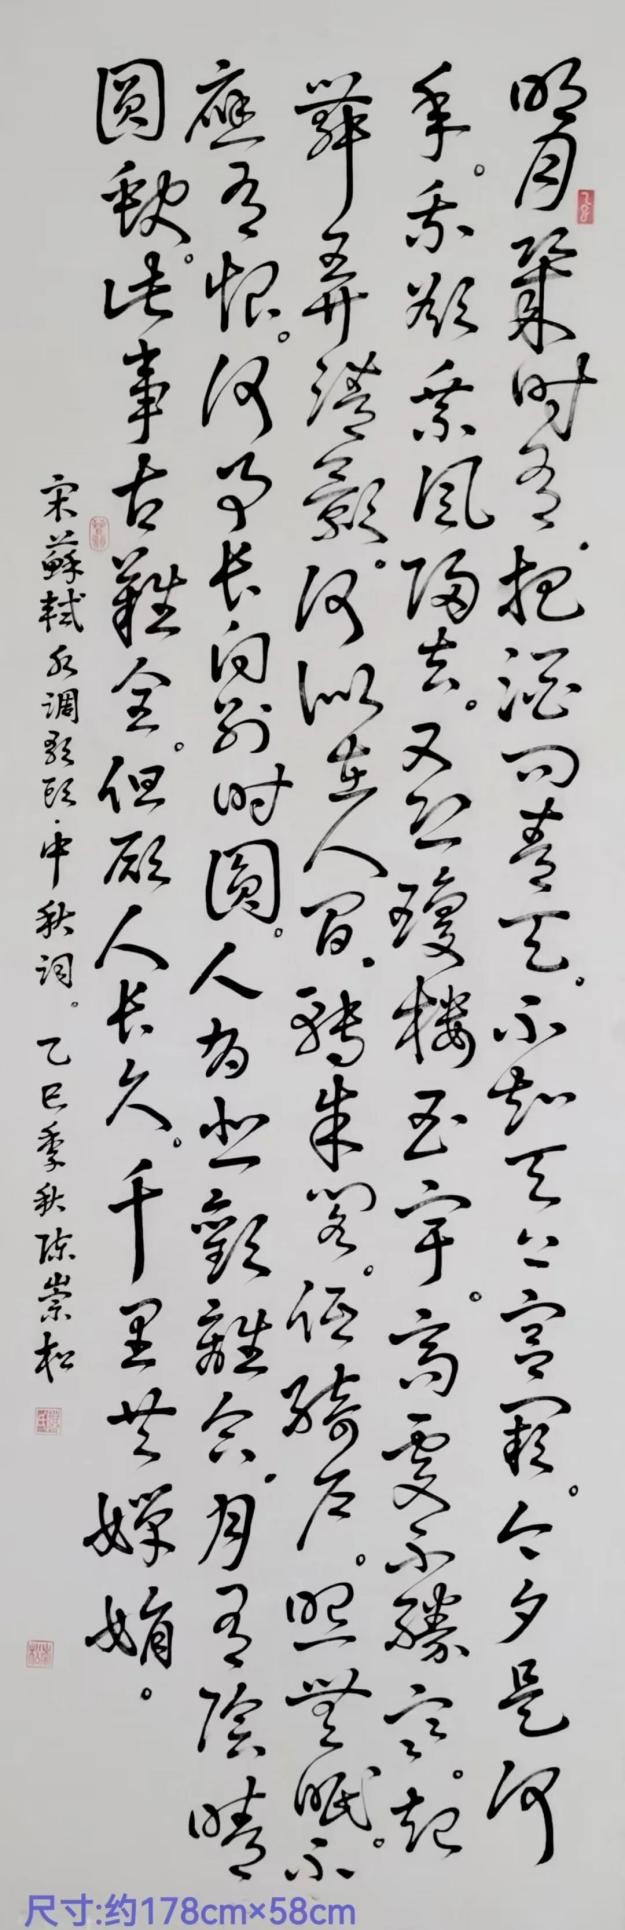 明月幾时有.把酒问青天。不知天上宫阙。今夕是何
年。我欲乘风归去。又恐瓊楼玉宇。高处不勝寒。起
舞弄清影。何似在人间.转朱阁。低绮户。照無眠。不
應有恨。何事长向别时圓。人有悲歡離合.月有陰晴
圓缺。此事古難全。但願人长久。千里共嬋娟。
宋蘇軾水调歌頭·中秋词。乙巳季秋陈崇松
尺寸:约178cm×58cm